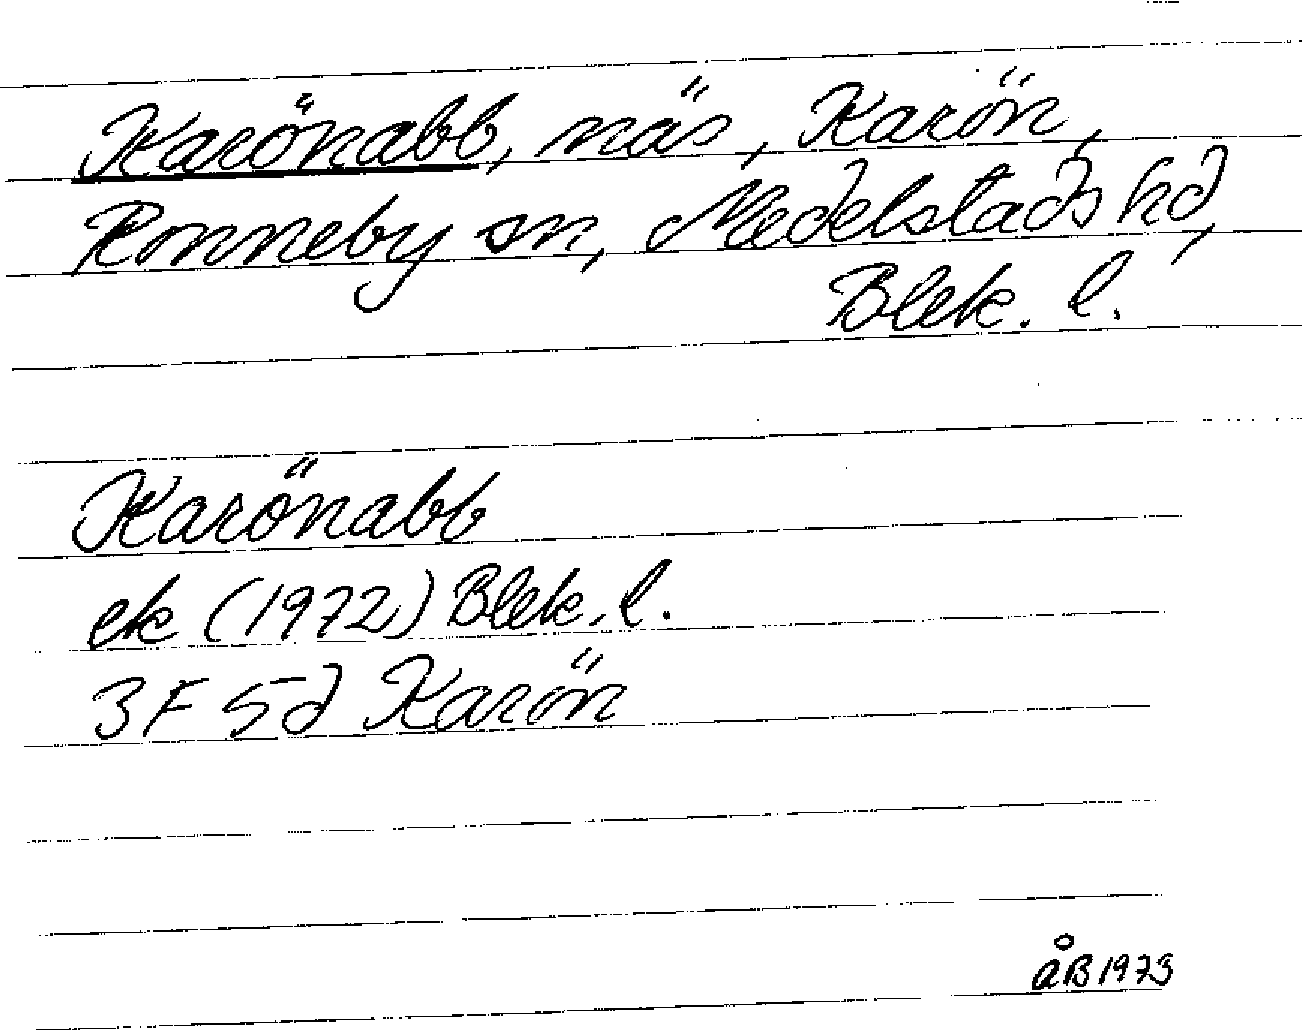 Karönabb, näs, Karön,
Ronneby sn, Medelstads hd,
Blek. l.
Karönabb
ek (1972) Blek. l.
3F 5d Karön
åB 1973